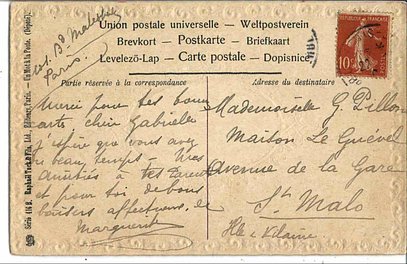 Union postale universelle – Weltpostverein
Brevkort - Postkarte - Briefkaart
Levelező-Lap - Carte postale - Dopisnice
Partie réservée à la correspondance
Adresse du destinataire
10
Paris
Merci pour tes bonnes
chère Gabrielle
j'espère que vous avez
beau temps - Mes
amitiés à tes parents
et pour toi de bons
baisers affectueux
Marguerite
Mademoiselle G. Pillon
Maison Le Guével
Avenue de la Gare
St Malo
Ille & Vilaine
Série 416 B. Raphael Tuck & Fils, Ltd., Editeurs, Paris.